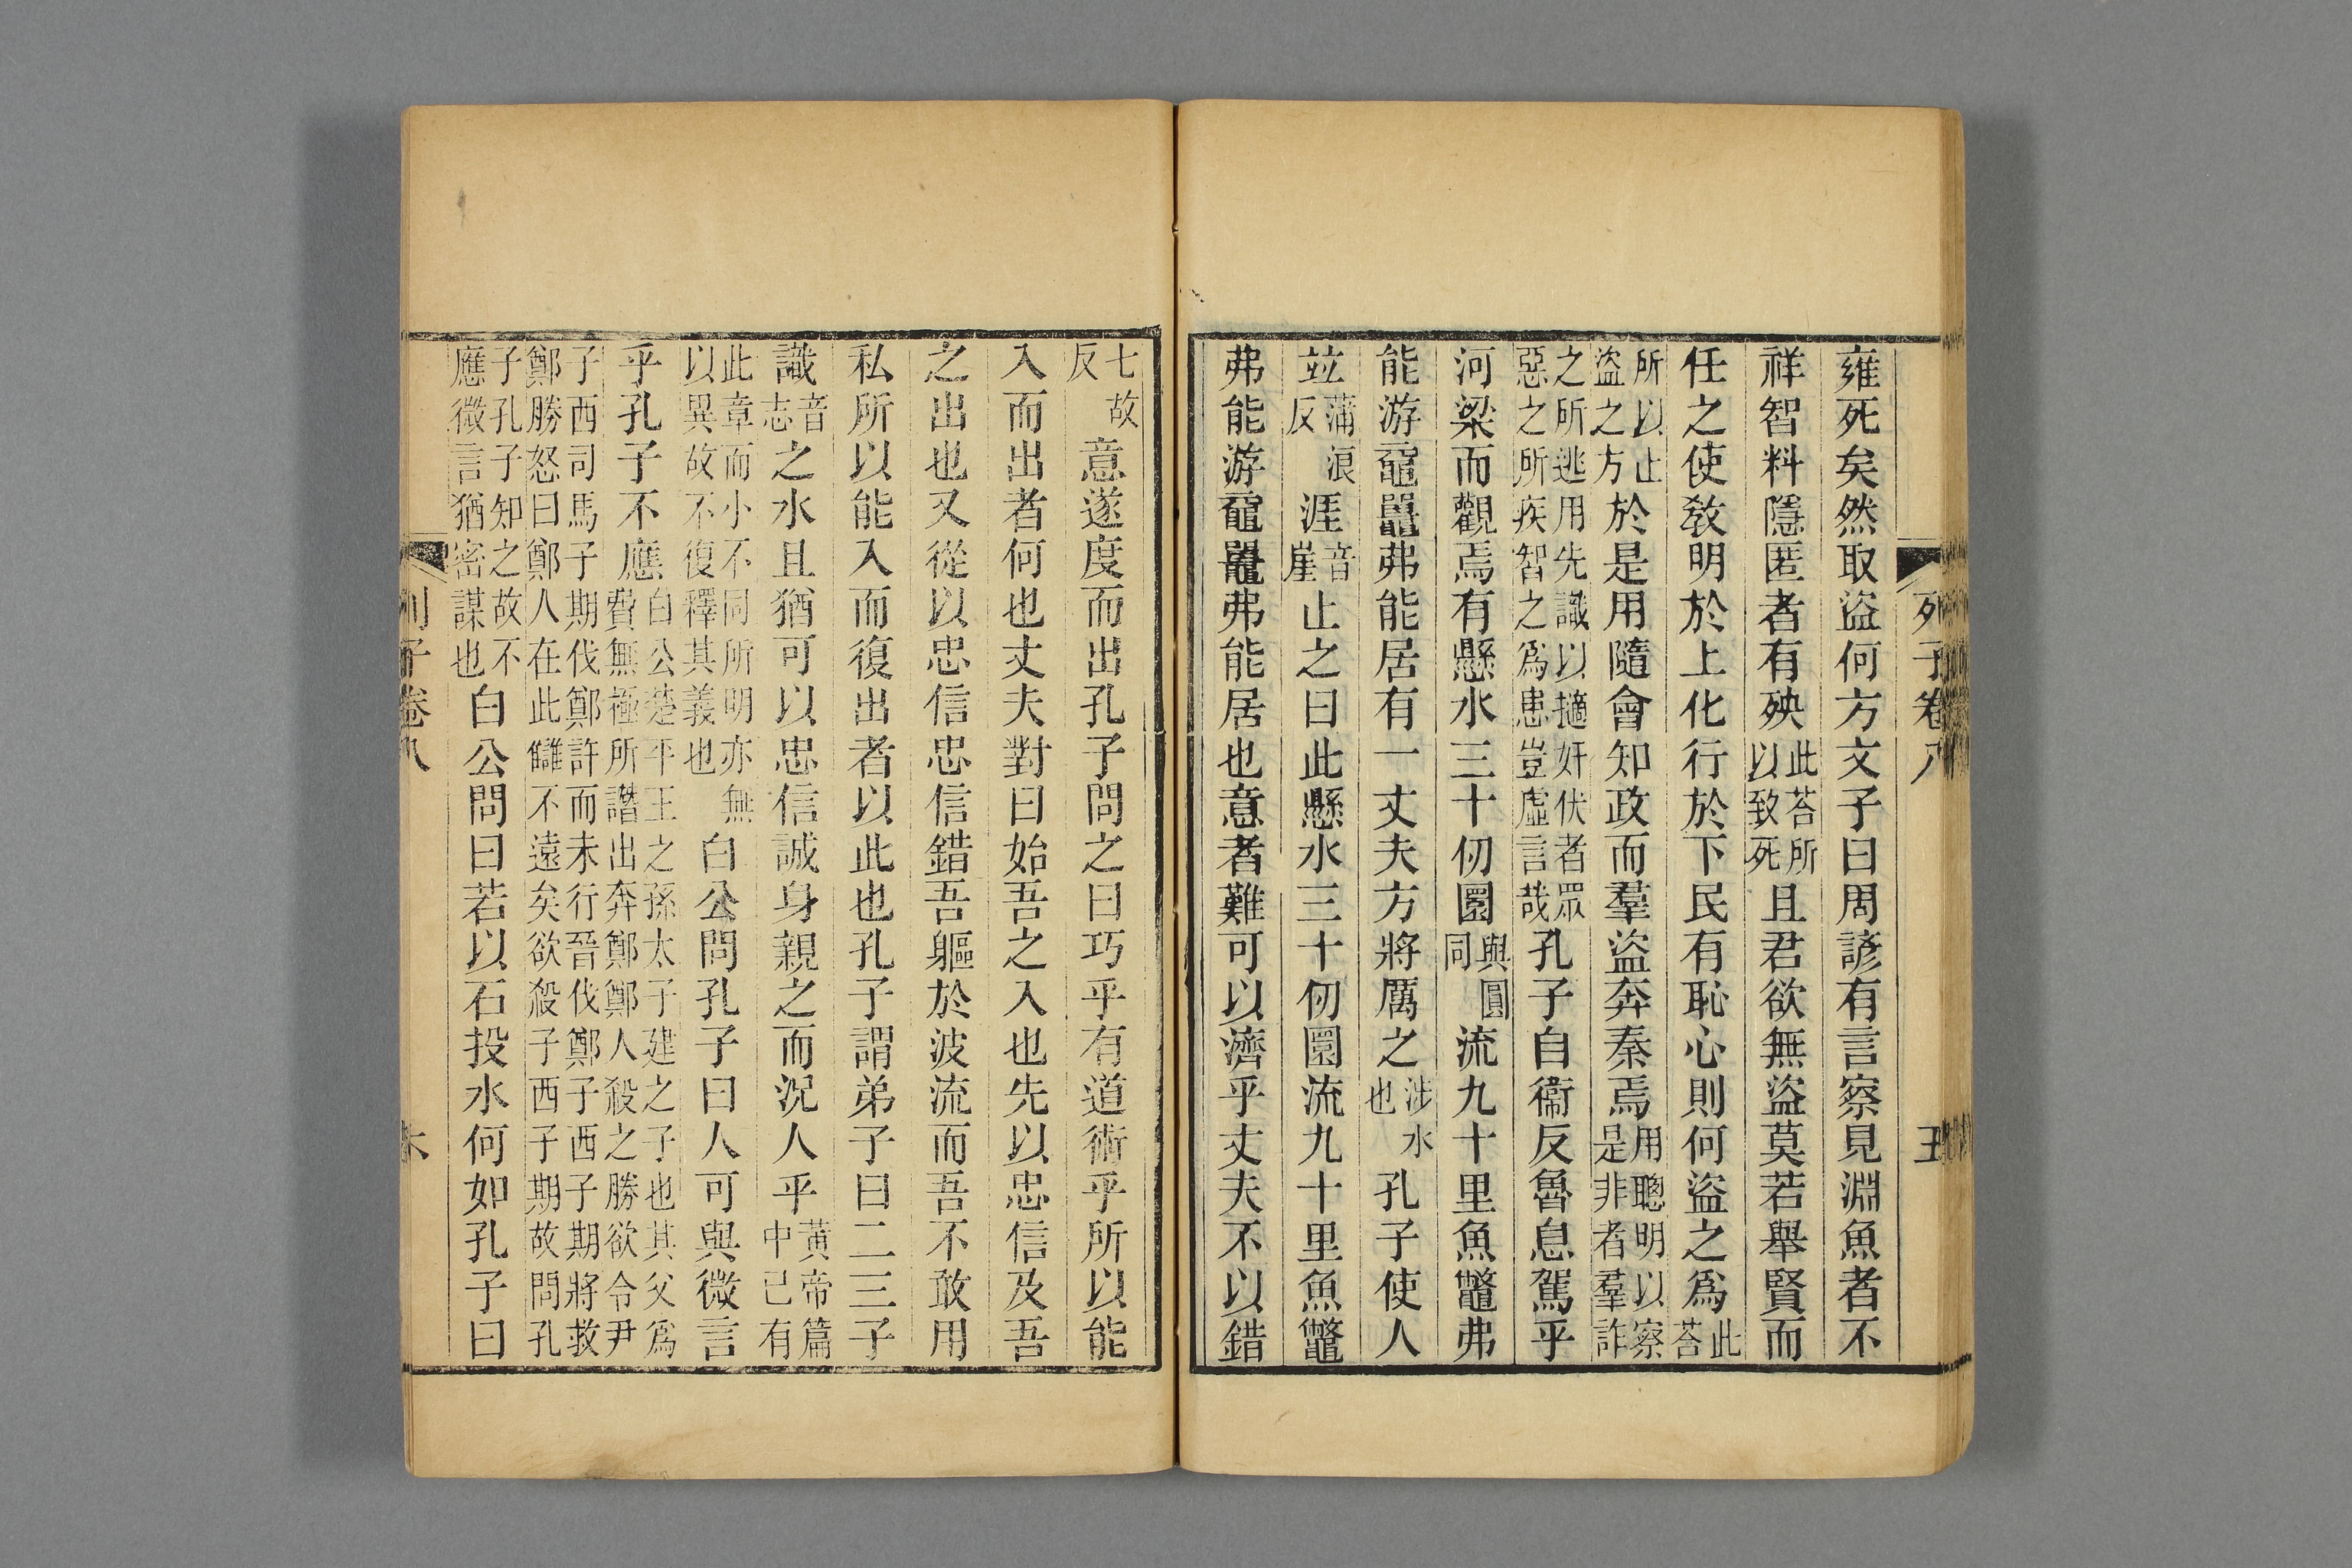 列子卷八 五
雍死矣然取盜何方文子曰周諺有言察見淵魚者不
祥智料隱匿者有殃此荅所以致死且君欲無盜莫若舉賢而
任之使敎明於上化行於下民有恥心則何盜之爲此荅
所以止盜之方於是用隨會知政而羣盜奔秦焉用聰明以察是非者羣詐
之所逃用先識以擿奸伏者眾惡之所疾智之爲患豈虛言哉孔子自衞反魯息駕乎
河梁而觀焉有懸水三十仞圜與圓同流九十里魚鼈弗
能游黿鼉弗能居有一丈夫方將厲之涉水也孔子使人
竝蒲浪反涯音崖止之曰此懸水三十仞圜流九十里魚鼈
弗能游黿鼉弗能居也意者難可以濟乎丈夫不以錯
七故反意遂度而出孔子問之曰巧乎有道術乎所以能
入而出者何也丈夫對曰始吾之入也先以忠信及吾
之出也又從以忠信忠信錯吾軀於波流而吾不敢用
私所以能入而復出者以此也孔子謂弟子曰二三子
識音志之水且猶可以忠信誠身親之而況人乎黃帝篇中已有
此章而小不同所明亦無以異故不復釋其義也白公問孔子曰人可與微言
乎孔子不應白公楚平王之孫太子建之子也其父爲費無極所譖出奔鄭鄭人殺之勝欲令尹
子西司馬子期伐鄭許而未行晉伐鄭子西子期將救鄭勝怒曰鄭人在此讎不遠矣欲殺子西子期故問孔
子孔子知之故不應微言猶密謀也白公問曰若以石投水何如孔子曰
列子卷八